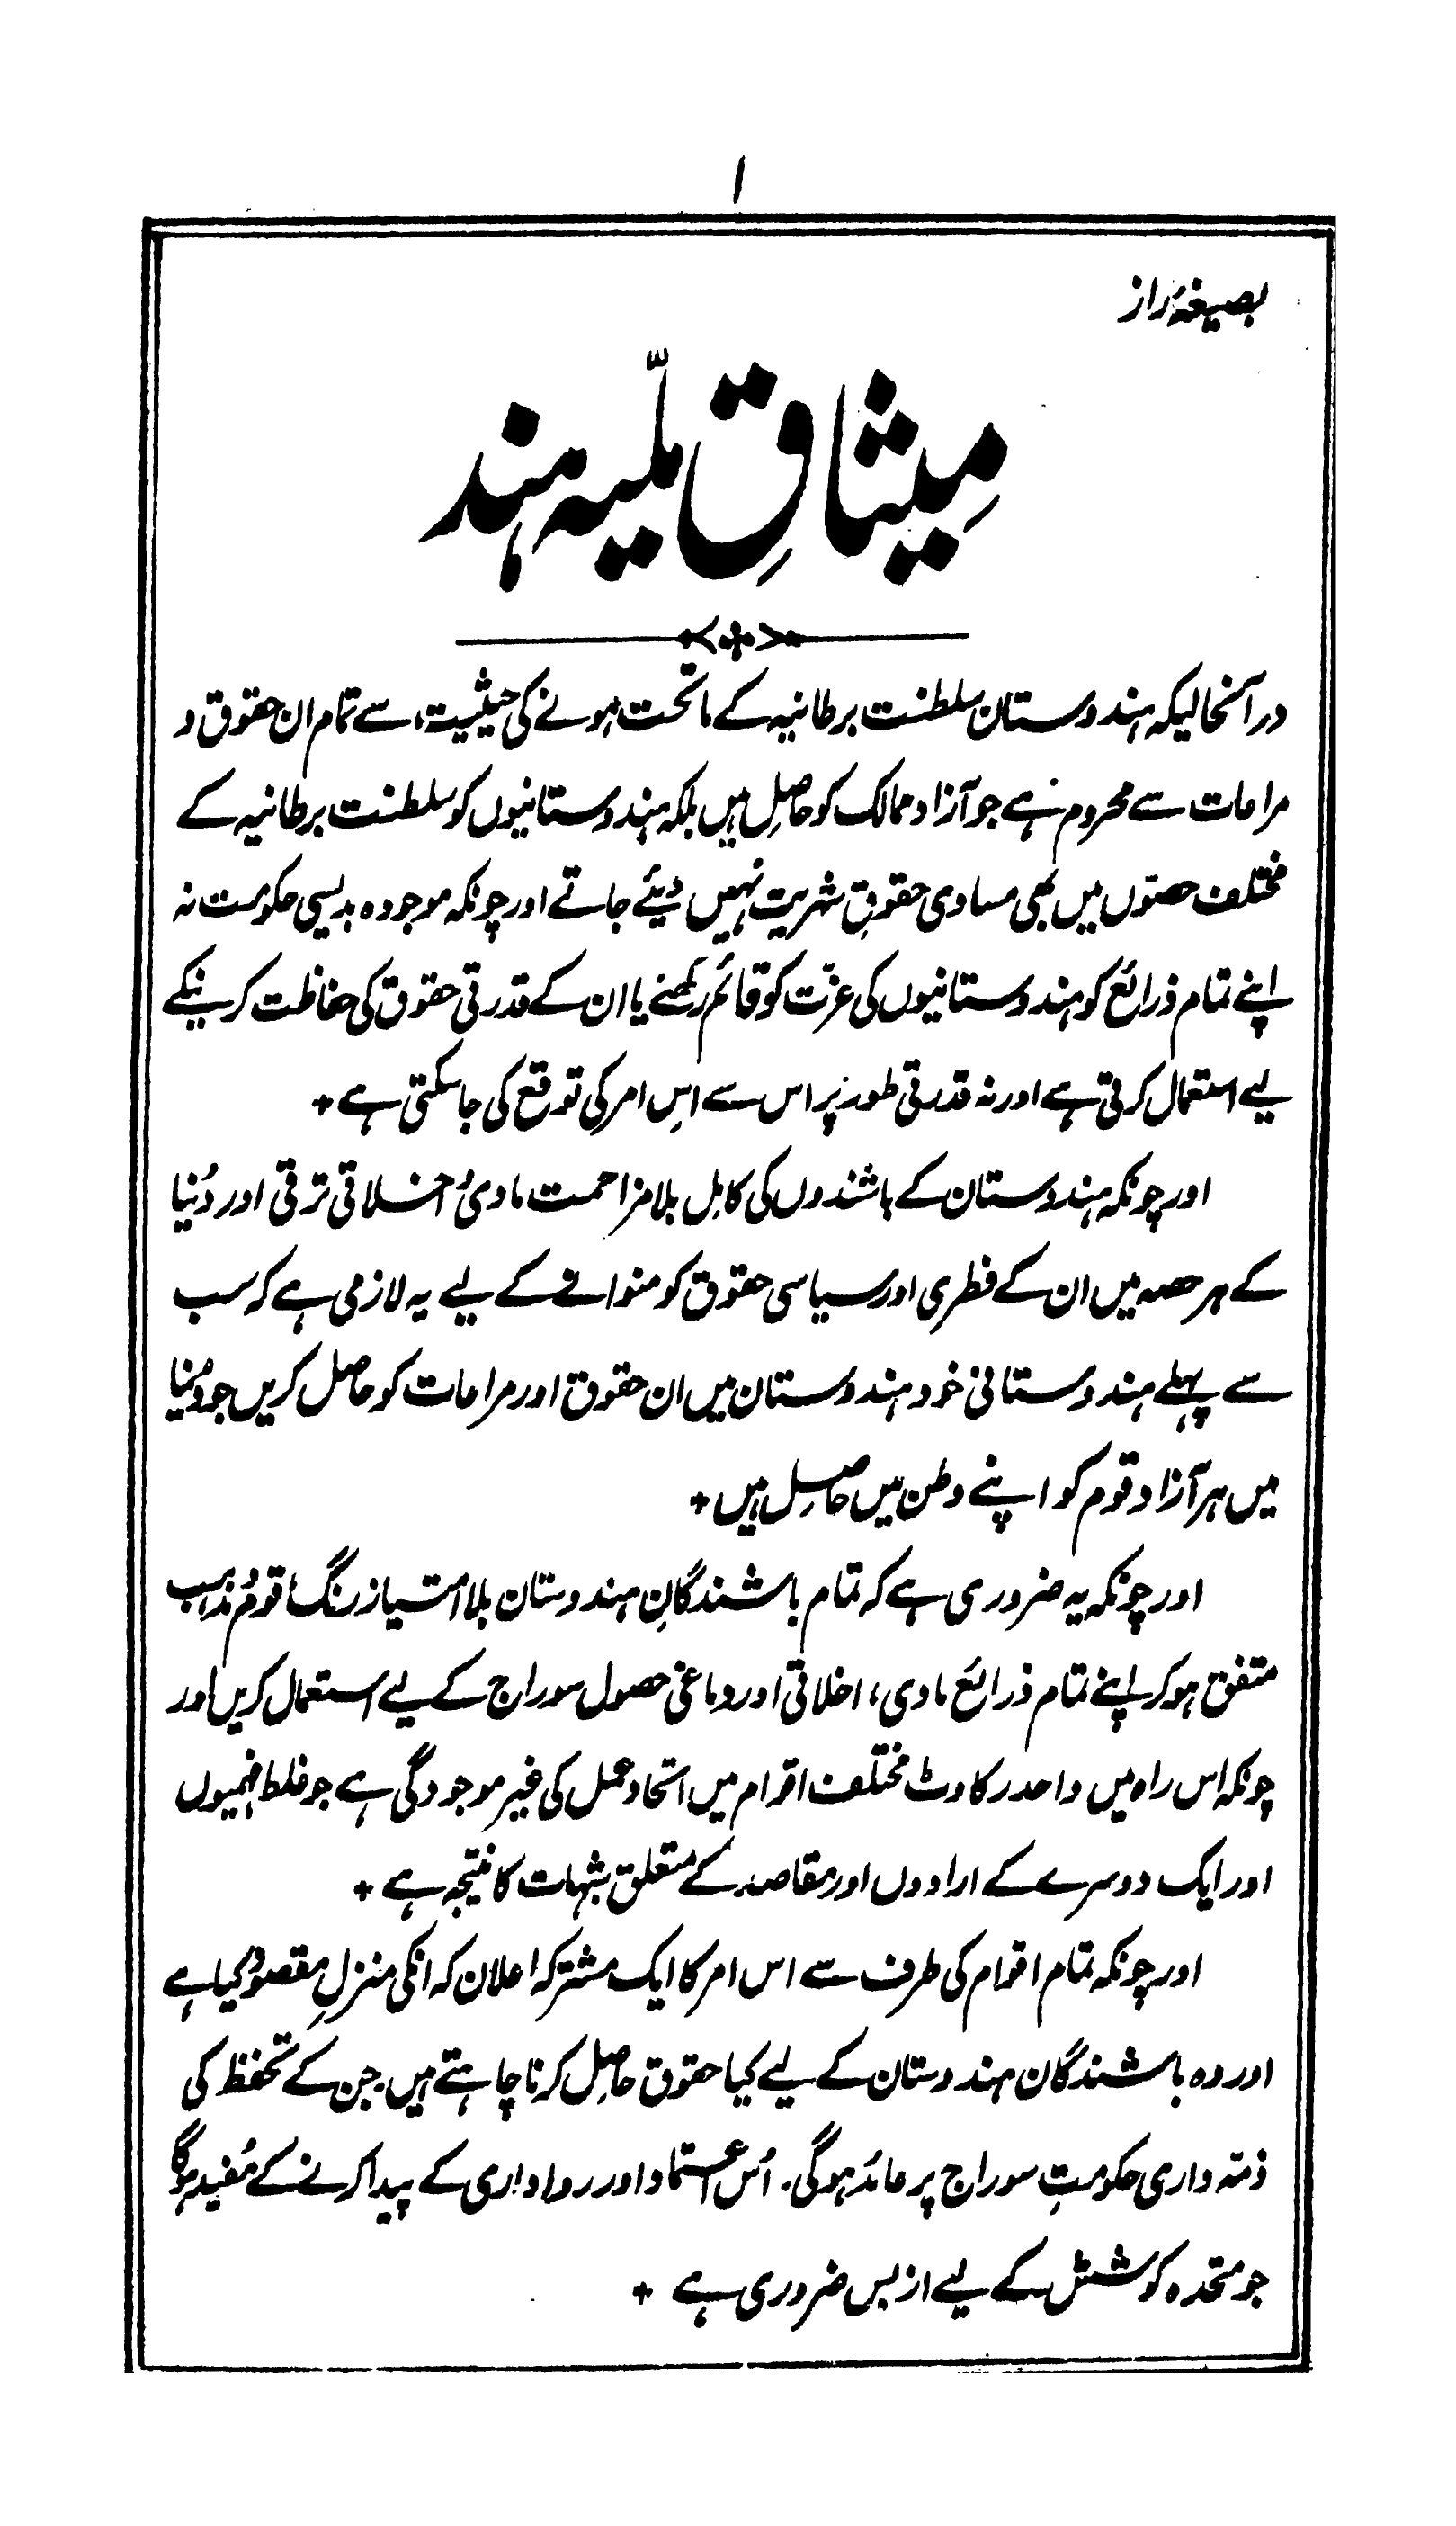 ۱
بصیغۂ راز
میثاقِ ملّیہ ہند
درآنحالیکہ ہندوستان سلطنت برطانیہ کے ماتحت ہونے کی حیثیت سے تمام ان حقوق و
مراعات سے محروم ہے جو آزاد ممالک کو حاصِل ہیں بلکہ ہندوستانیوں کو سلطنت برطانیہ کے
مختلف حصّوں میں بھی مساوی حقوقِ شہریت نہیں دیئے جاتے اور چونکہ موجودہ بدیسی حکومت نہ
اپنے تمام ذرائع کو ہندوستانیوں کی عزّت کو قائم رکھنے یا ان کے قدرتی حقوق کی حفاظت کرنیکے
لیے استعمال کرتی ہے اور نہ قدرتی طور پر اس سے اسِ امر کی توقع کی جاسکتی ہے +
اور چونکہ ہندوستان کے باشندوں کی کامِل بلا مزاحمت مادی و اخلاقی ترقی اور دُنیا
کے ہر حصہ میں ان کے فطری اور سیاسی حقوق کو منوانے کے لیے یہ لازمی ہے کہ سب
سے پہلے ہندوستانی خود ہندوستان میں ان حقوق اور مراعات کو حاصل کریں جو دُنیا
میں ہر آزاد قوم کو اپنے وطن میں حاصِل ہیں +
اور چونکہ یہ ضروری ہے کہ تمام باشندگانِ ہندوستان بلا امتیاز رنگ قوم و مذہب
متفق ہوکر اپنے تمام ذرائع مادی، اخلاقی اور دماغی حصول سوراج کے لیے استعمال کریں اور
چونکہ اس راہ میں واحد رکاوٹ مختلف اقوام میں اتحاد عمل کی غیر موجودگی ہے جو غلط فہمیوں
اور ایک دوسرے کے ارادوں اور مقاصد کے متعلق شبہات کا نتیجہ ہے +
اور چونکہ تمام اقوام کی طرف سے اس امر کا ایک مشترکہ اعلان کہ انکی منزلِ مقصود کیا ہے
اور وہ باشندگان ہندوستان کے لیے کیا حقوق حاصِل کرنا چاہتے ہیں جن کے تحفظ کی
ذمّہ داری حکومتِ سوراج پر عائد ہوگی. اُس اعتماد اور رواداری کے پیدا کرنے کے مُفید ہوگا
جو متحدہ کوشش کے لیے ازبس ضروری ہے +